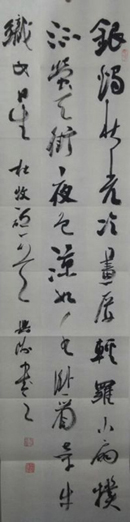 銀燭秋光冷畫屏輕羅小扇撲
流螢天街夜色涼如水臥看牽牛
織女星 杜牧 書